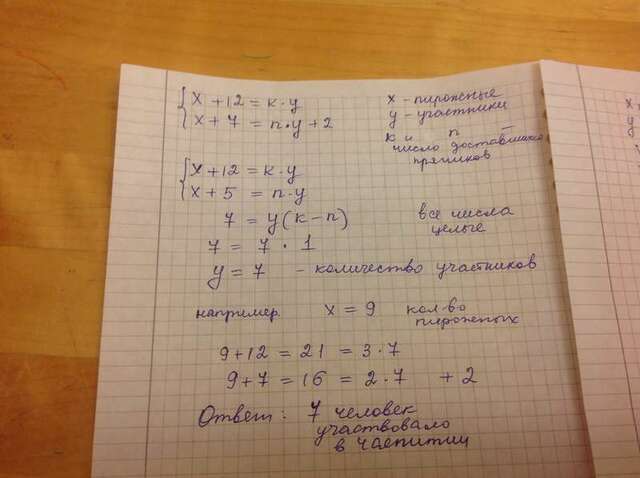 x + 12 = к·y
x + 7 = п·y + 2
x - пироженые
y - участники
к и п -
число доставшихся
пряников
x + 12 = к·y
x + 5 = п·y
7 = y(к - п)
все числа
целые
7 = 7 · 1
y = 7 - количество участников
например x = 9 кол-во
пироженых
9 + 12 = 21 = 3·7
9 + 7 = 16 = 2·7 + 2
Ответ: 7 человек
участвовало
в чаепитии
x
y